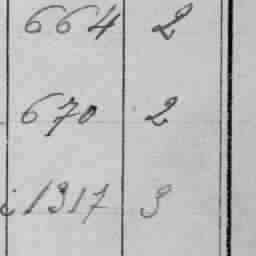 664 2
670 2
i 1317 3